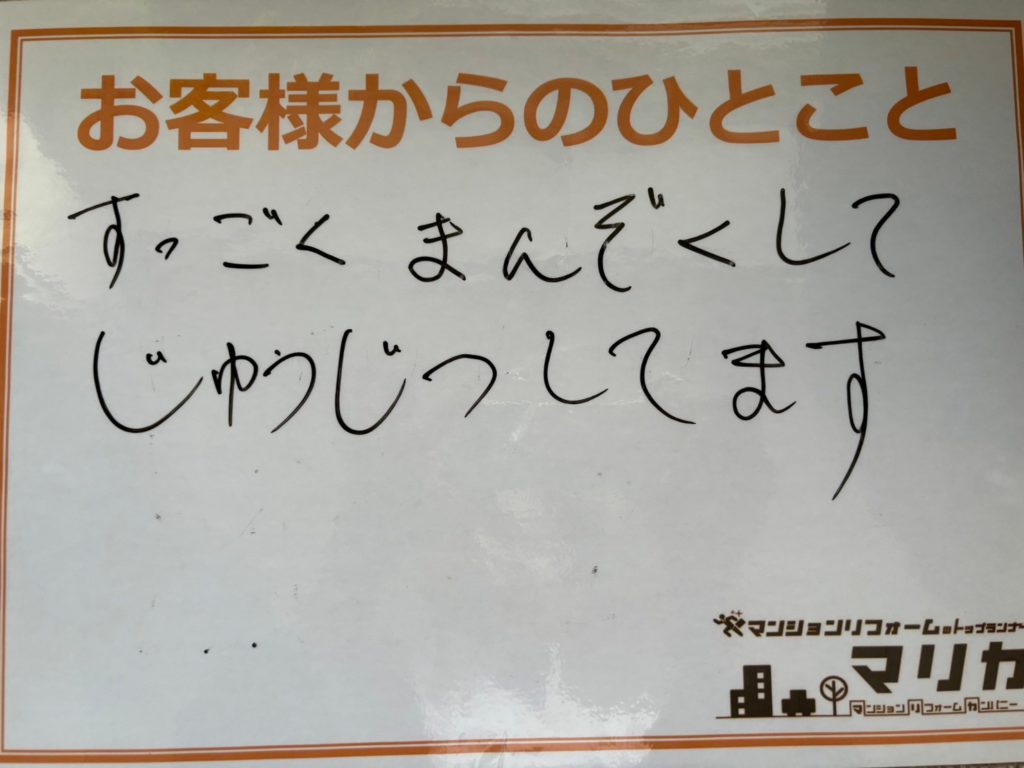 お客様からのひとこと
すっごく まんぞくして
じゅうじつしてます
マンションリフォームのトップランナー
マリカ
マンションリフォームカンパニー